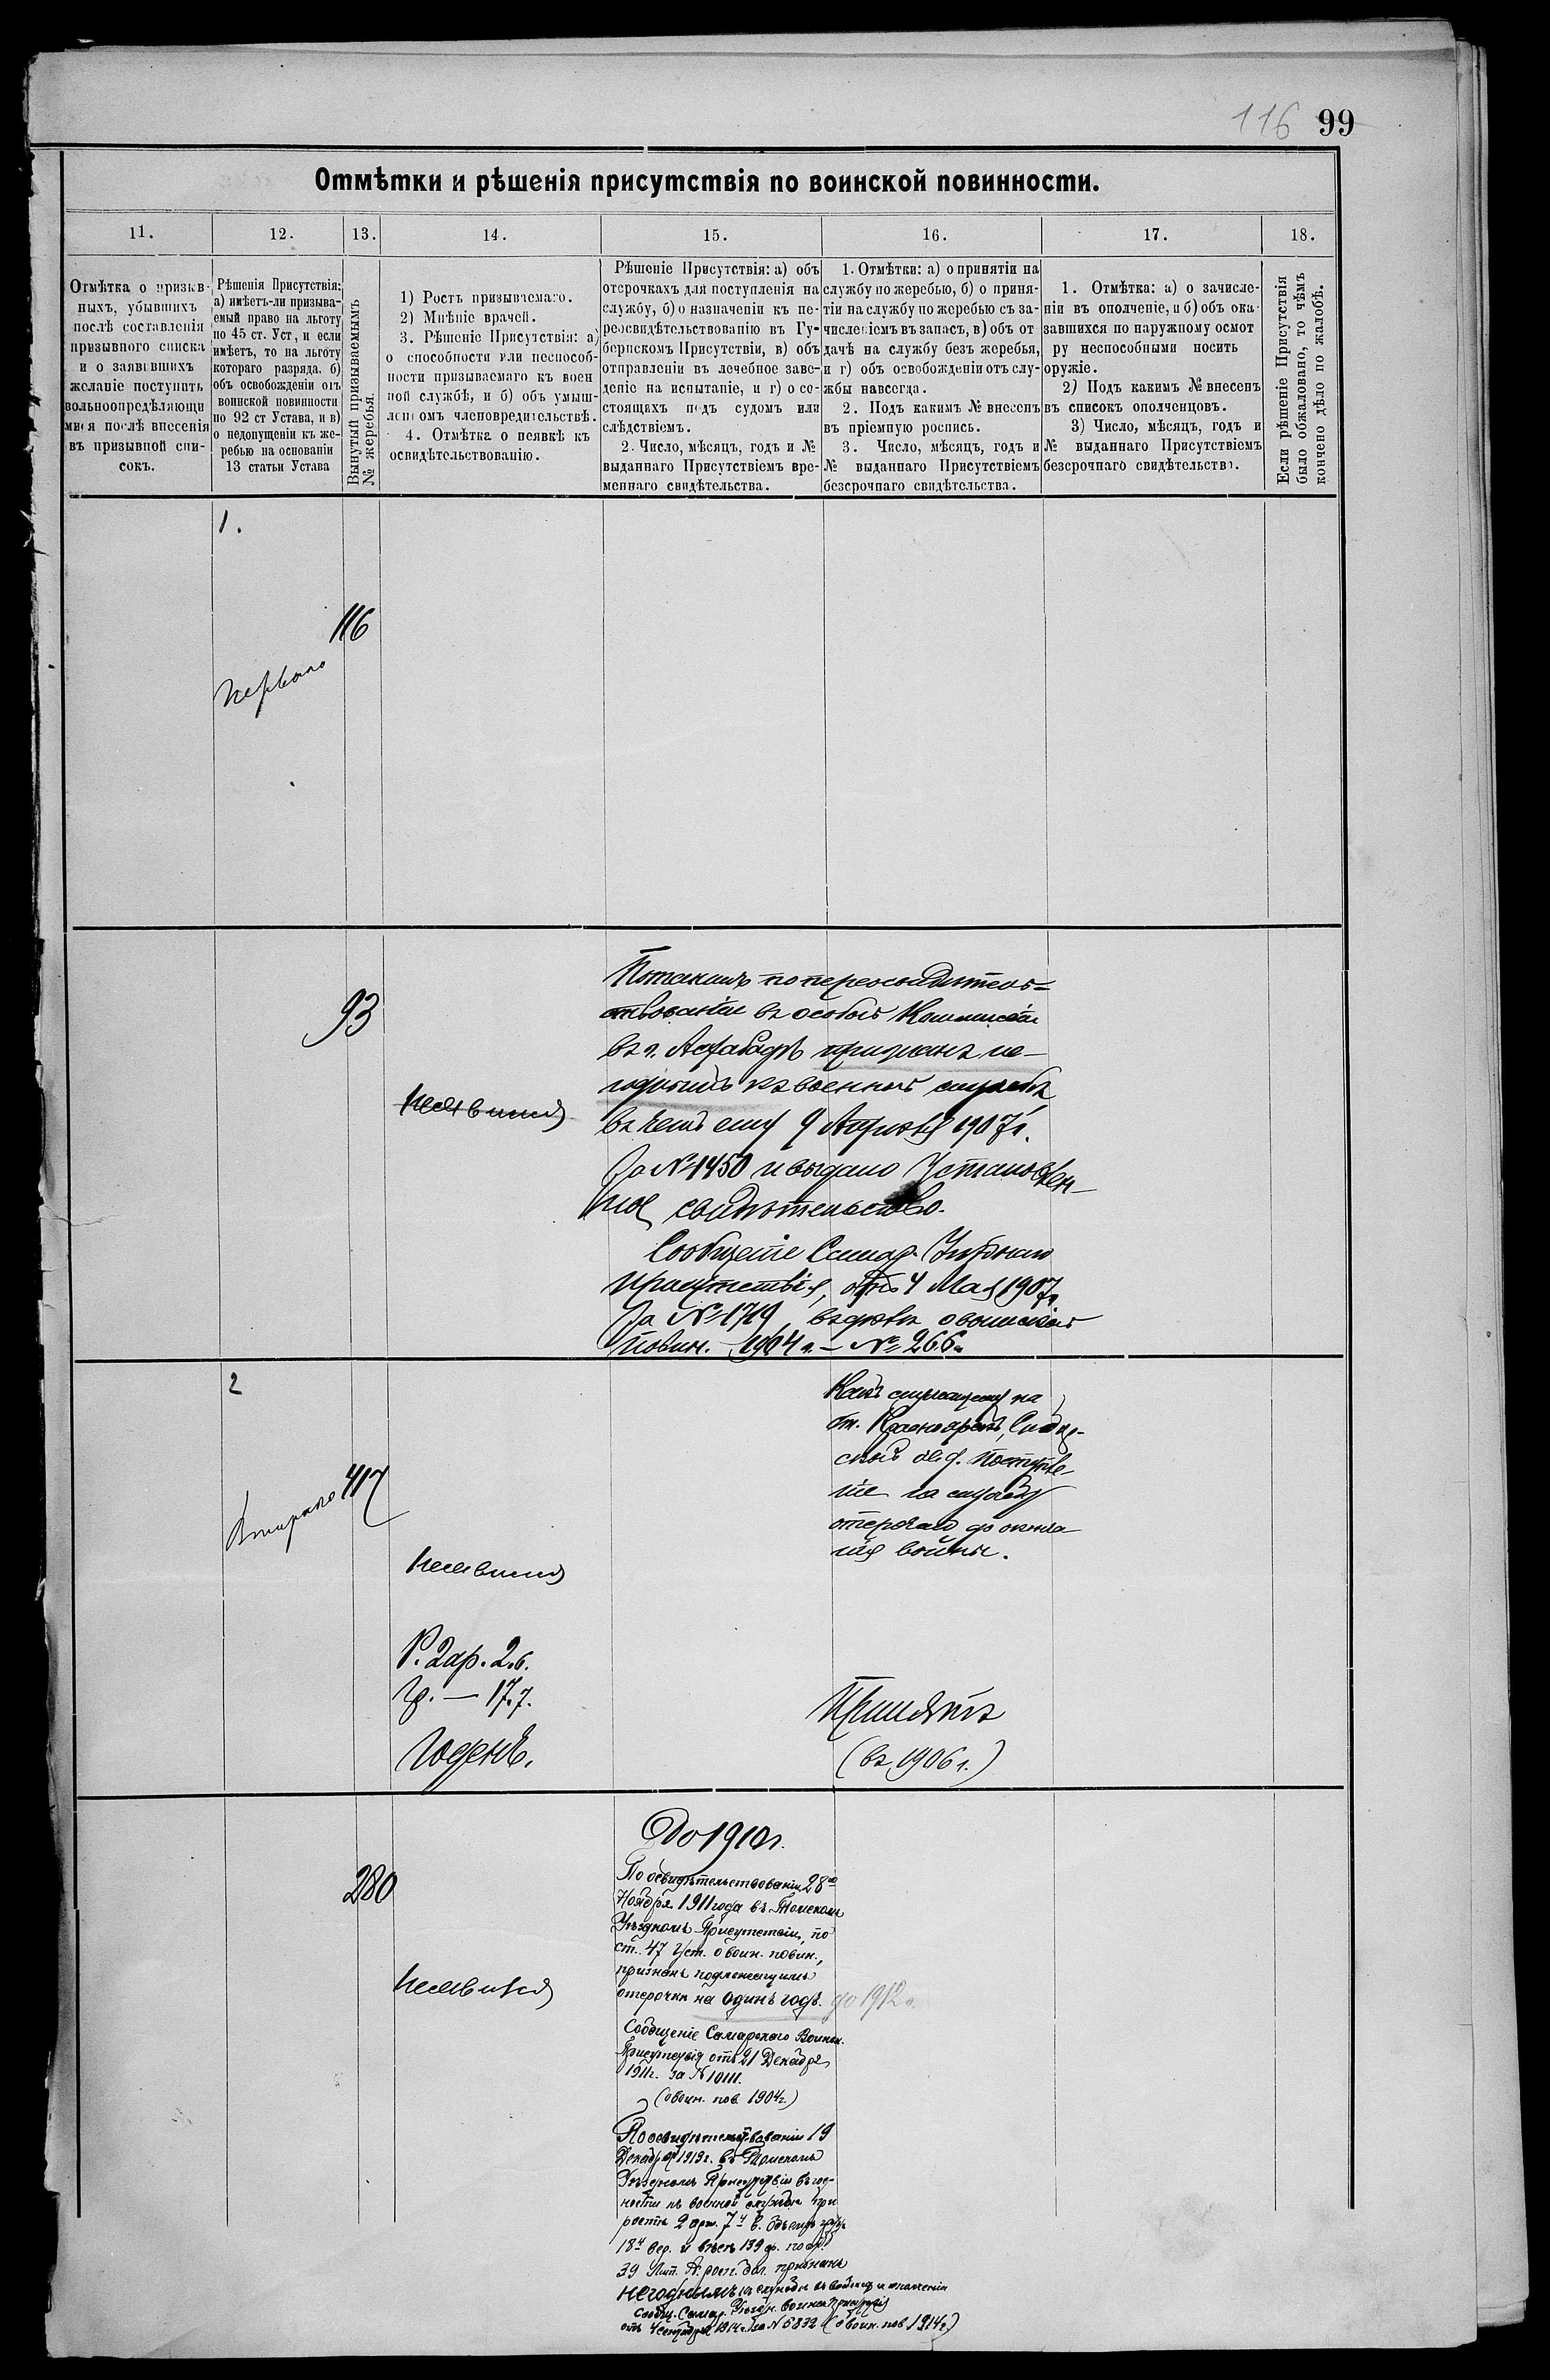 116 99
Отмѣтки и рѣшенія присутствія по воинской повинности.
11. 12. 13. 14. 15. 16. 17. 18.
Отмѣтка о призыв-
ныхъ, убывшихъ
послѣ составленія
призывного списка
и о заявившихъ
желаніе поступить
вольноопредѣляющи
мися послѣ внесенія
въ призывной спи-
сокъ.
Рѣшенія Присутствія:
а) имѣетъ-ли призыва-
емый право на льготу
по 45 ст. Уст, и если
имѣетъ, то на льготу
котораго разряда. б)
объ освобожденіи отъ
воинской повинности
по 92 ст Устава, и в)
о недопущеніи къ же-
ребью на основаніи
13 статьи Устава
Вынутый призываемымъ
№ жеребья.
1) Ростъ призываемаго.
2) Мнѣніе врачей.
3. Рѣшеніе Присутствія: а)
о способности или неспособ-
ности призываемаго къ воен
ной службѣ, и б) объ умыш-
леномъ членовредительствѣ.
4. Отмѣтка о неявкѣ къ
освидѣтельствованію.
Рѣшеніе Присутствія: а) объ
отсрочкахъ для поступленія на
службу, б) о назначеніи къ пе-
реосвидѣтельствованію въ Гу-
бернскомъ Присутствіи, в) объ
отправленіи въ лечебное заве-
деніе на испытаніе, и г) о со-
стоящихъ подъ судомъ или
слѣдствіемъ.
2. Число, мѣсяцъ, годъ и №
выданнаго Присутствіемъ вре-
меннаго свидѣтельства.
1. Отмѣтки: а) о принятіи на
службу по жеребью, б) о приня-
тіи на службу по жеребью съ за-
численіемъ въ запасъ, в) объ от
дачѣ на службу безъ жеребья,
и г) объ освобожденіи отъ слу-
жбы навсегда.
2. Подъ какимъ № внесенъ
въ пріемную роспись.
3. Число, мѣсяцъ, годъ и
№ выданнаго Присутствіемъ
безсрочнаго свидѣтельства.
1. Отмѣтка: а) о зачисле-
ніи въ ополченіе, и б) объ ока-
завшихся по наружному осмот
ру неспособными носить
оружіе.
2) Подъ какимъ № внесенъ
въ списокъ ополченцовъ.
3) Число, мѣсяцъ, годъ и
№ выданнаго Присутствіемъ
безсрочнаго свидѣтельства.
Если рѣшеніе Присутствія
было обжаловано, то чѣмъ
кончено дѣло по жалобѣ.
1.
116
Перваго
93
Неявился
по переосвидѣтель-
ствованіи въ особой Коммисіи
въ г. Асхабадѣ признанъ не-
годнымъ къ военной службѣ
въ чемъ ему 9 Апрѣля 1907 г.
За № 1450 и выдано Установлен-
ное свидѣтельство.
Сообщеніе Самар.
присутствія, отъ 4 Мая 1907 г.
За № 1719, въ дѣлѣ о воинской
повин. 1904 г. – № 266.
2
417
Втораго
Неявился
Р. 2 ар. 2.6.
Гр. — 17.7.
Годенъ.
Какъ служащему на
ст. Красноярскъ, Сибир-
ской ж. д. поступле-
ніе на службу
отсрочено до оконча-
нія войны.
Принятъ
(въ 1906 г.)
280
Неявился
До 1910 г.
По освидѣтельствованіи 28го
Ноября 1911 года въ Томскомъ
Уѣздномъ Присутствіи, по
ст. 47 Уст. о воин. повин.,
признанъ подлежащимъ
отсрочкѣ на одинъ годъ. до 1912 г.
Сообщеніе Самарскаго Воинск.
Присутствія отъ 21 Декабря
1911 г. за № 10111.
(о воин. пов. 1904 г.)
По освидѣтельствованіи 19
Декабря 1913 г. въ Томскомъ
Уѣздномъ Присутствіи въ год-
ности къ военной службѣ при
ростѣ 2 арш. 7 ч в. объемѣ груди
18 ч вер. и вѣсѣ 139 ф. по
39 Лит. А. росп. бол. признанъ
негоднымъ къ службѣ въ войскахъ и ополченіи
Сообщ. Самар. Уѣздн. воинск Присутствія
отъ 4 сентября 1914 г. за № 5832 (о воин. пов. 1914 г.)